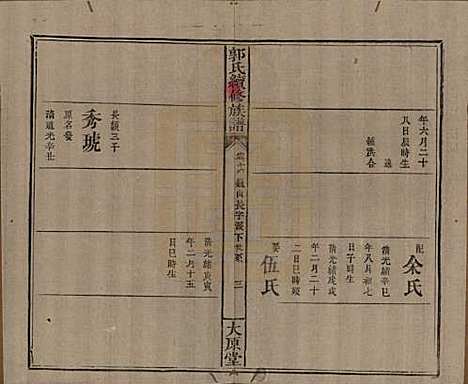 年六月二十
八日辰時生
配
余氏
清光緒辛巳
年八月初七
日子時生
娶
伍氏
清光緒戊戌
年二月二十
二日巳時娶
郭氏續修族譜
長字派下世系
三
大原堂
清光緒庚寅
年二月十五
日巳時生
長顯三子
秀琥
原名發
清道光辛丑